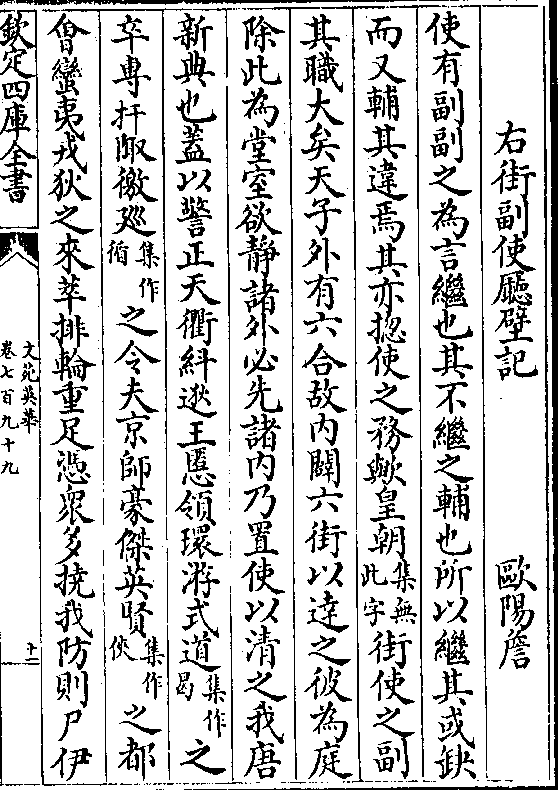 右街副使廳壁記　歐陽詹
使有副副之為言繼也其不繼之輔也所以繼其或缺
而又輔其違焉其亦揔使之務歟皇朝集無此字街使之副
其職大矣天子外有六合故内闢六街以達之彼為庭
除此為堂室欲静諸外必先諸内乃置使以清之我唐
新典也蓋以警正天衢糾逖王慝領環游式道集作曷之
卒專扞陬徼廵集作循之令夫京師豪傑英賢集作俠之都
㑹蠻夷戎狄之來萃排輪重足慿衆多撓我防則尸伊
欽定四庫全書
文苑英華
卷七百九十九
十二